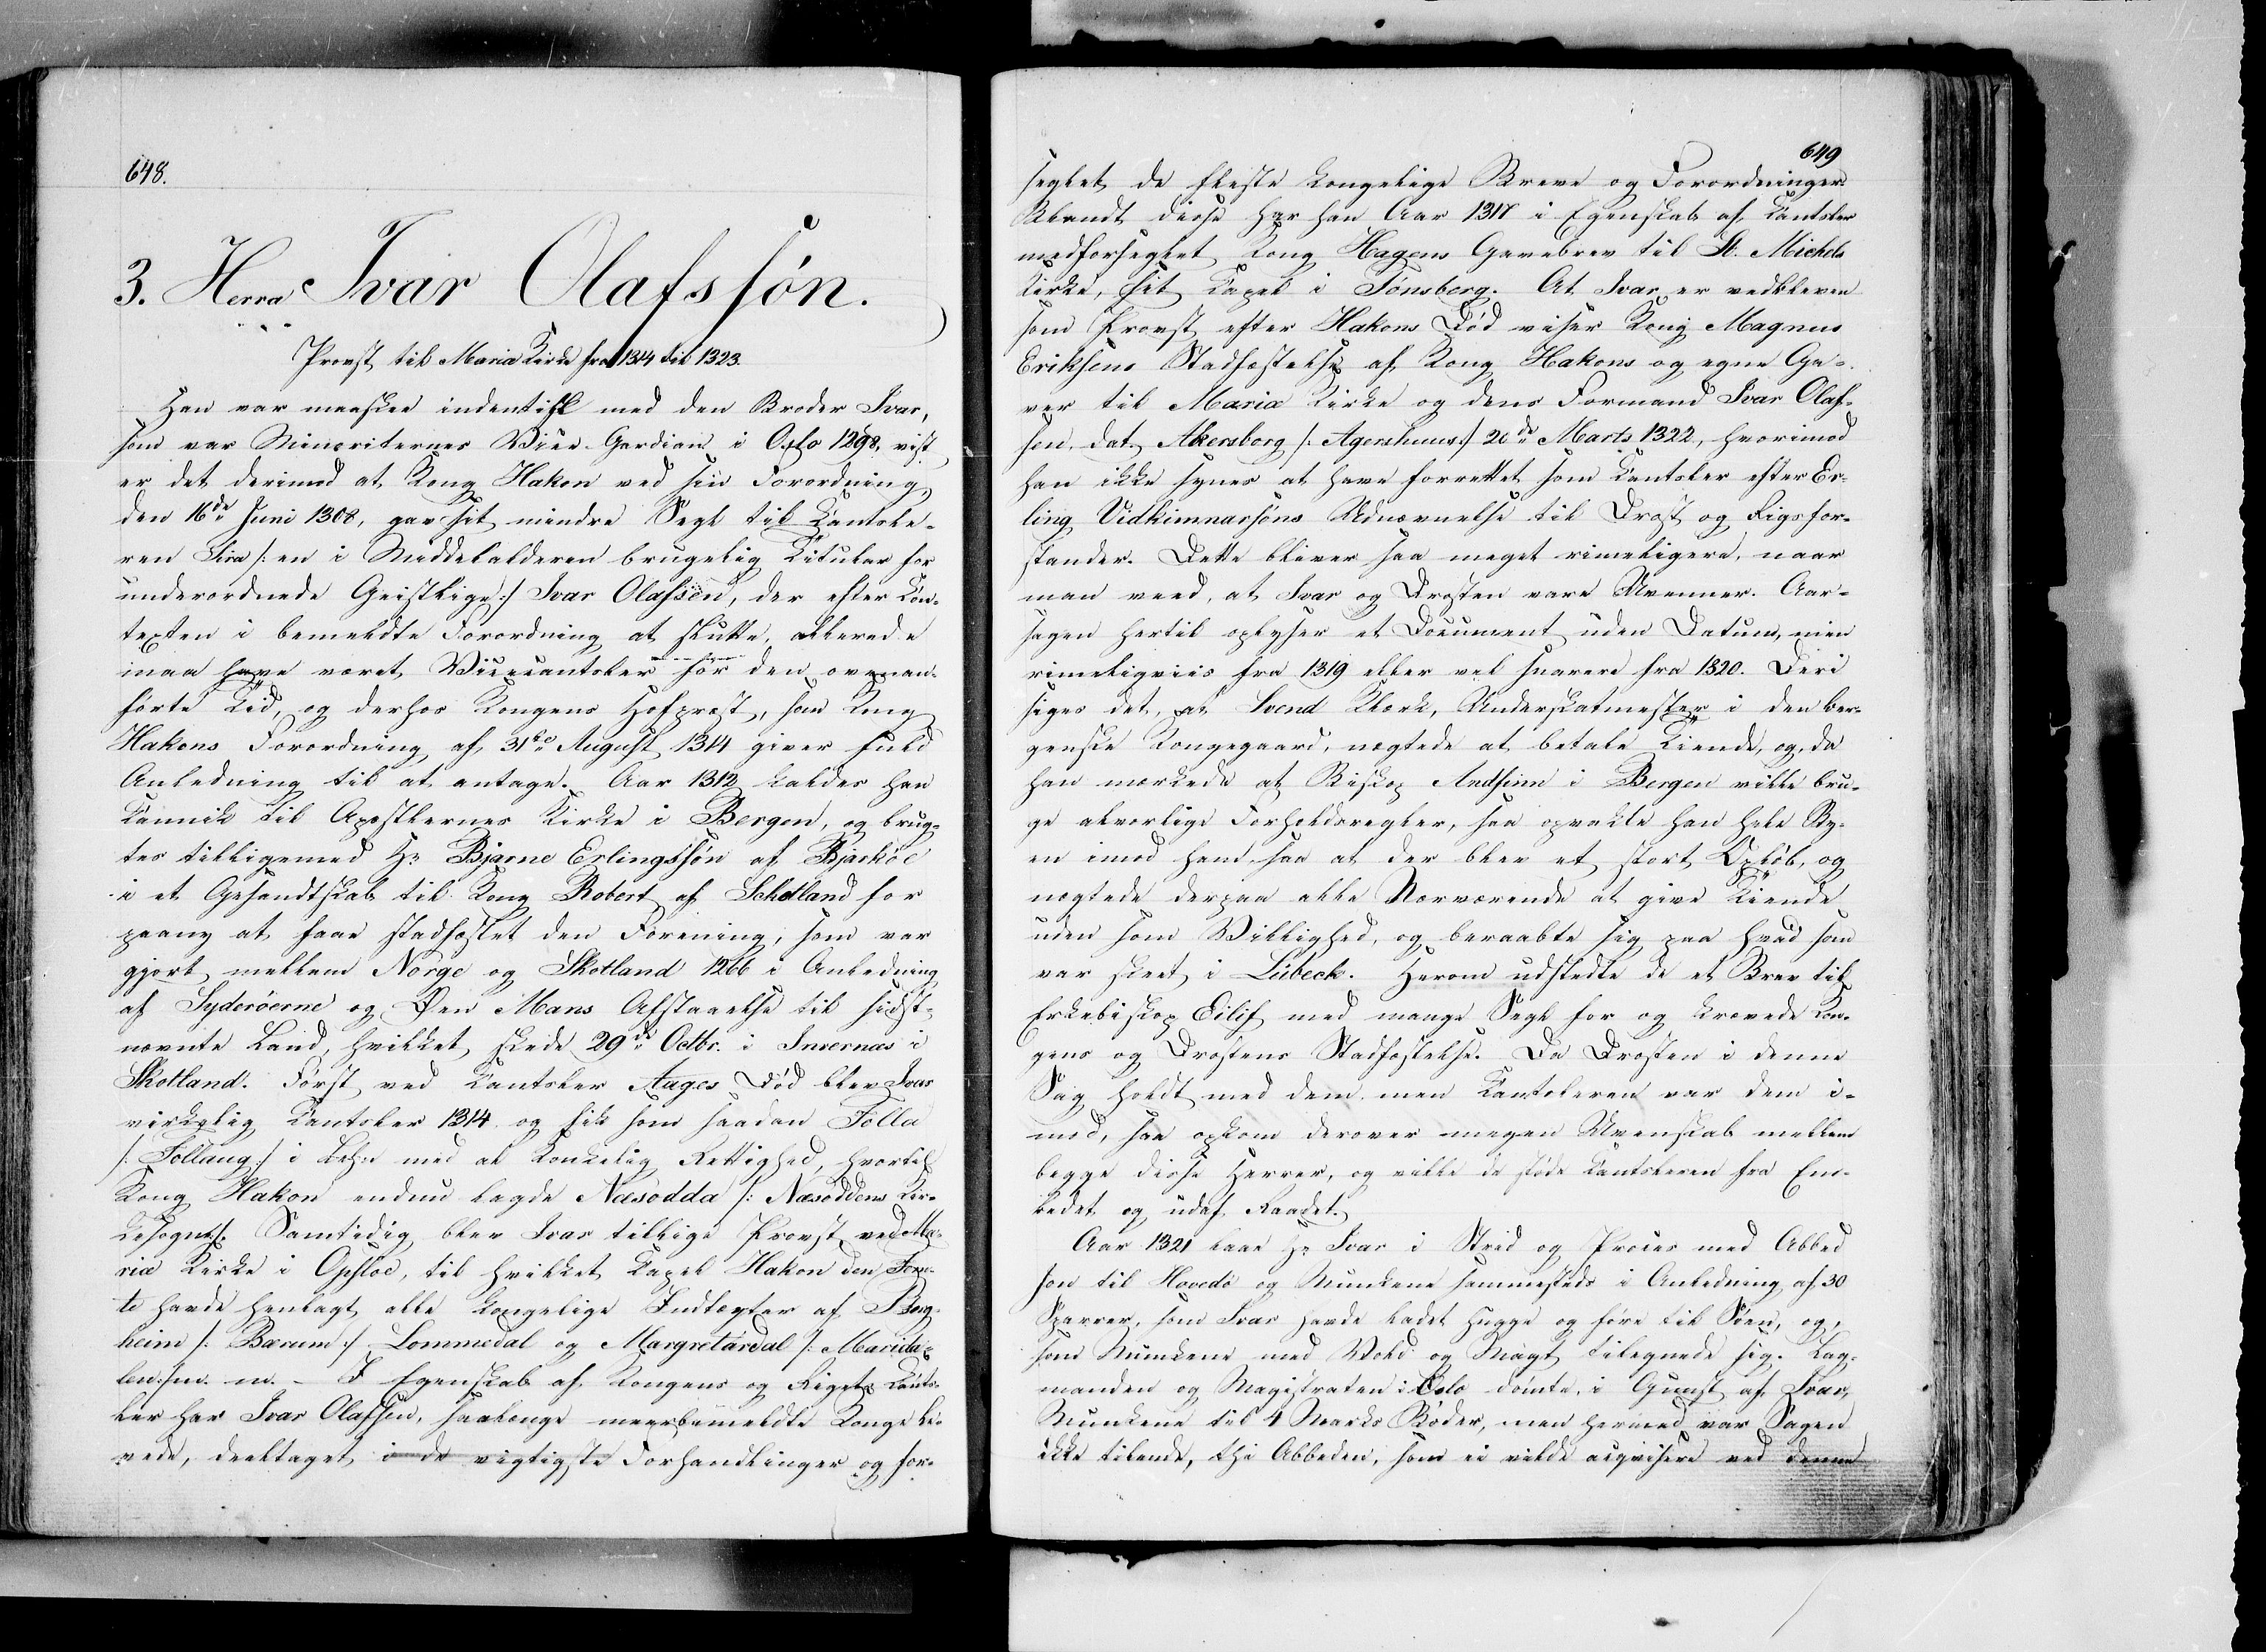 648.
3. Herra Ivar Olafssön.
Provst til Maria Kirke fra 1314 til 1323.
Han var maaskee indentisk med den Broder Ivar,
som var Minoriternes Vice-Gardian i Oslo 1298, vist
er det derimod at Kong Hakon ved sin Forordning
den 16de Juni 1308, gav sit mindre Segl til Cantsle-
ren Sira /: en i Middelalderen brugelig Titular for
underordnede Geistlige :/ Ivar Olafssön, der efter Con-
texten i bemeldte Forordning at slutte, allerede
maa have været Vicecantsler för den ovenan-
förte Tid, og derhos Kongens Hofprest, som Kong
Hakons Forordning af 31te August 1314 giver fuld
Anledning til at antage. Aar 1312 kaldes han
Cannik til Apostlernes Kirke i Bergen, og brug-
tes tilligemed Hr Bjarne Erlingssön af Bjarköe
i et Gesandtskab til Kong Robert af Schotland for
paany at faae stadfæstet den Forening, som var
gjort mellem Norge og Skotland 1266 i Anledning
af Syderöerne og Öen Mans Afstaaelse til sidst-
nævnte Land, hvilket skede 29de Octbr. i Invernæs i
Skotland. Först ved Cantsler Aages Död blev Ivar
virkelig Cantsler 1314 og fik som saadan Folla
/: Follaug :/ i Lehn med al Kongelig Rettighed, hvortil
Kong Hakon endnu lagde Nasodda /: Næsoddens Kir-
kesogn :/. Samtidig blev Ivar tillige Provst ved Ma-
riæ Kirke i Opsloe, til hvilket Capel Hakon den Fem-
te havde henlagt alle Kongelige Indtægter af Berg-
heim /: Bærum :/ Lommedal og Margretardal /: Marida-
len :/ m. m. – I Egenskab af Kongens og Rigets Cants-
ler har Ivar Olafsen, saalænge meerbemeldte Konge le-
vede, deeltaget i de vigtigste Forhandlinger og for-
649
seglet de fleste Kongelige Breve og Forordninger.
Blandt disse har han Aar 1317 i Egenskab af Cantsler
medforseglet Kong Hagens Gavebrev til St. Michels
Kirke, sit Capel i Tönsberg. At Ivar er vedbleven
som Provst efter Hakons Död viser Kong Magnus
Eriksens Stadfæstelse af Kong Hakons og egne Ga-
ver til Mariæ Kirke og dens Formand Ivar Olaf-
sen, dat. Akersborg /: Agershuus :/ 20de Marts 1322, hvorimod
han ikke synes at have forrettet som Cantsler efter Er-
ling Vidkunnarsöns Udnævnelse til Drost og Rigsfor-
stander. Dette bliver saa meget rimeligere, naar
man veed, at Ivar og Drosten vare Uvenner. Aar-
sagen hertil oplyser et Document uden Datum, men
rimeligviis fra 1319 eller vel snarere fra 1320. Deri
siges det, at Svend Klerk, Underskatmester i den ber-
genske Kongegaard, nægtede at betale Tiende, og, da
han mærkede at Biskop Audfinn i Bergen vilde bru-
ge alvorlige Forholdsregler, saa opvakte han hele By-
en imod ham, saa at der blev et stort Oplöb, og
nægtede derpaa alle Nærværende at give Tiende
uden som Villighed, og beraabte sig paa hvad som
var skeet i Lübeck. Herom udstedte de et Brev til
Erkebiskop Eilif med mange Segl for og krævede Kon-
gens og Drostens Stadfæstelse. Da Drosten i denne
Sag holdt med dem, men Cantsleren var dem i-
mod, saa opkom derover megen Uvenskab mellem
begge disse Herrer, og vilde de stöde Cantsleren fra Em-
bedet og udaf Raadet.
Aar 1321 laae Hr Ivar i Strid og Proces med Abbed
Jon til Hovedö og Munkene sammesteds i Anledning af 30
Sparrer, som Ivar havde ladet hugge og före til Söen, og,
som Munkene med Vold og Magt tilegnede sig. Lag-
manden og Magistraten i Oslo dömte, i Gunst af Ivar,
Munkene til 4 Marks Böder, men hermed var Sagen
ikke tilende, thi Abbeden, som ei vilde acqvisere ved denne